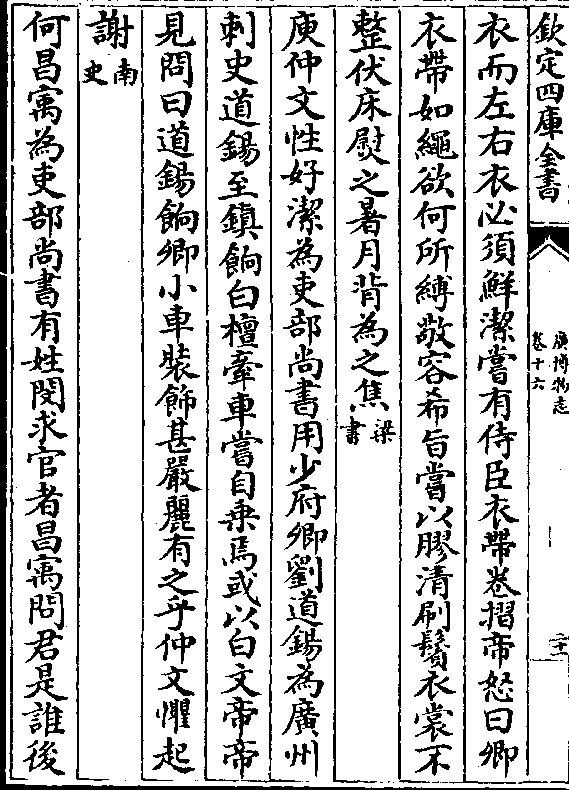 欽定四庫全書
廣博物志
卷十六
二十
衣而左右衣必須鮮潔嘗有侍臣衣帶卷摺帝怒曰卿
衣帶如繩欲何所縛敬容希旨嘗以膠清刷鬢衣裳不
整伏床熨之暑月背為之焦梁書
庾仲文性好潔為吏部尚書用少府卿劉道錫為廣州
刺史道錫至鎮餉白檀牽車嘗自乗焉或以白文帝帝
見問曰道錫餉卿小車裝飾甚嚴麗有之乎仲文懼起
謝南史
何昌㝢為吏部尚書有姓閔求官者昌㝢問君是誰後